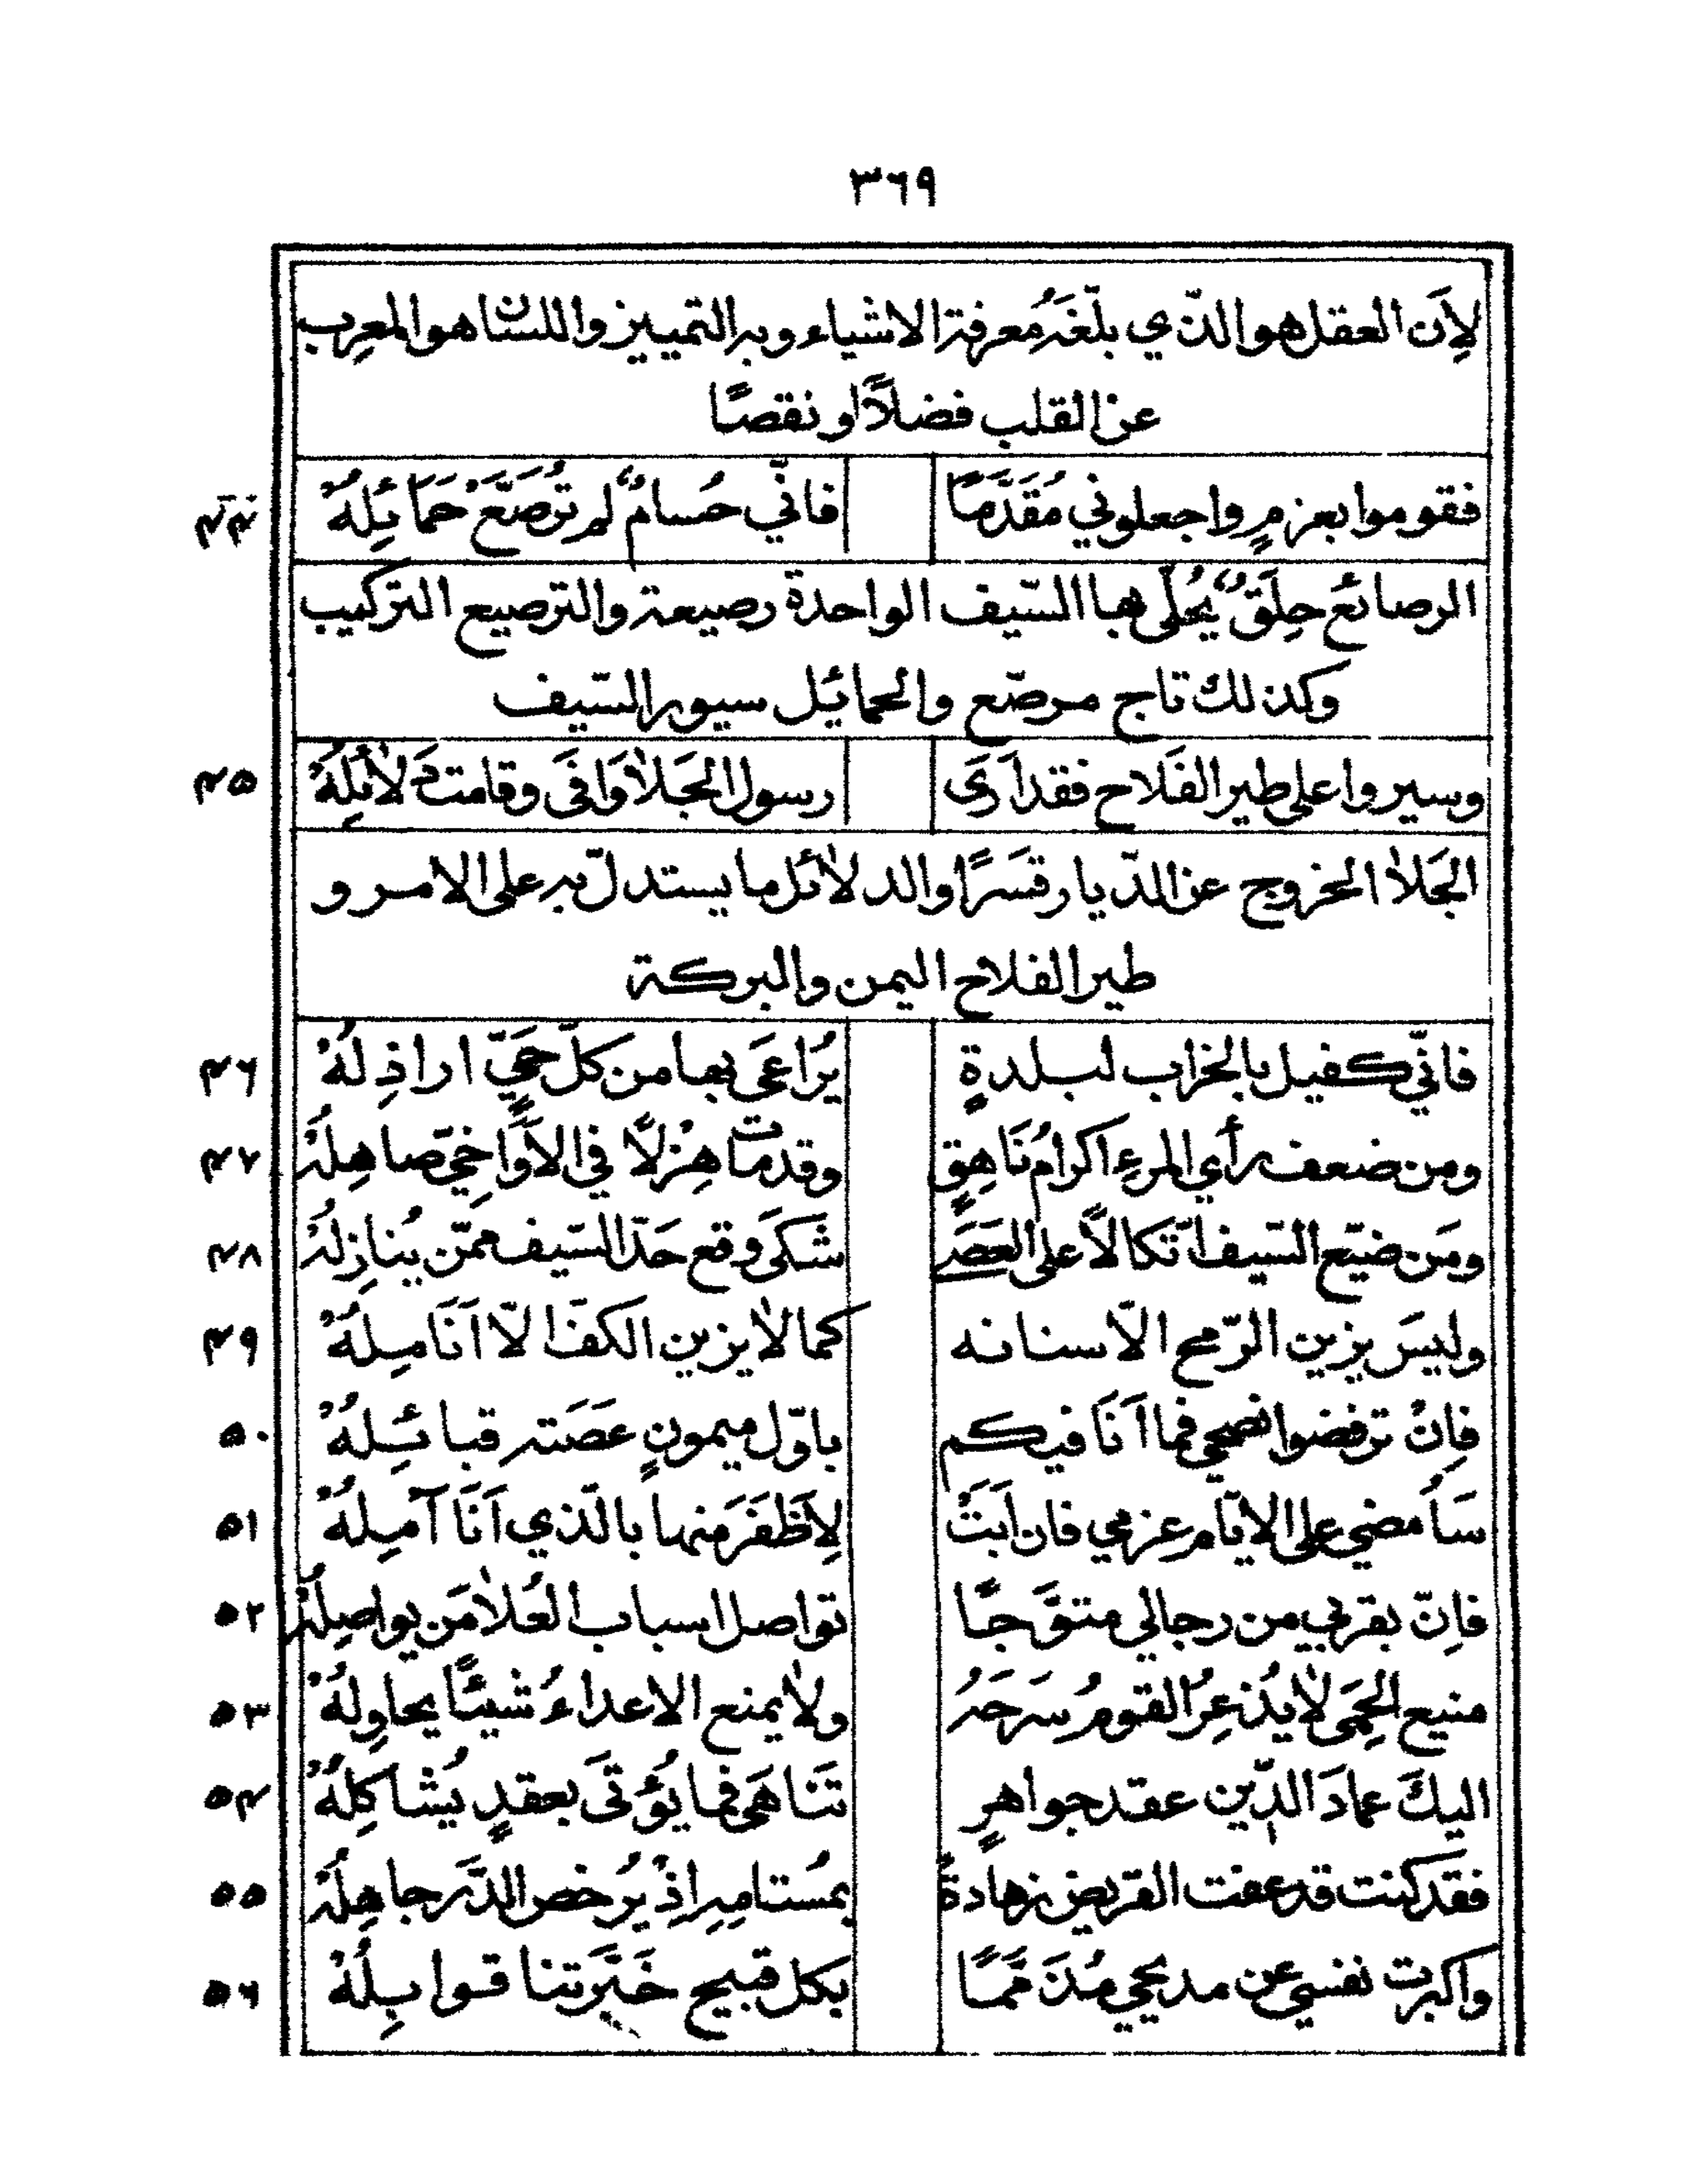 ٣٦٩
لِأَن العقل هو الذّي بلّغَهُ معرفة الاشياء وبه التمييز واللسان هو المعرِب
عن القلب فضلاً او نقصًا
فقوموا بعزمٍ واجعلوني مُقَدَّمًا فانّي حُسامٌ لم تُرَصَّعْ حَمَائِلُهْ ۴۴
الرصائع حِلَقٌ يُحلّى بها السّيف الواحدة رصيعة والترصيع التركيب
وكذلك تاج مرصّع والحمائل سيور السّيف
وسيروا على طير الفَلاح فقد اَرَى رسول الجَلاٰ وَافَى وقامت دَلاٰئِلُهْ ۴۵
الجَلاٰ الخروج عن الدّيار قسَرًا والدلاٰئل ما يستدلّ به على الامر و
طير الفلاح اليمن والبركة
فانّي كفيل بالخراب لبلدةٍ يُرَاعَى بها من كلّ حَيّ اراذِلُهْ ۴۶
ومن ضعف رأي المرءِ اكرامُ نَاهِقٍ وقد مات هزْلاً في الاَوَاخِيّ صاهلُهْ ۴٧
ومَن ضيّع السّيف اتّكالاً على العَصَى شَكَى وقع حَدّ السّيف ممّن يُنازِلُهْ ۴٨
وليسَ يزين الرّمح الاّ سنانه كما لاٰ يزين الكفّ الّا اَنَامِلُهْ ۴٩
فاِنْ ترفضوا نصحي فما اَنَا فيكم باوّل ميمونٍ عَصَته قبائِلُهْ ۵٠
سَاُمضي على الايّام عزمي فان اَبَتْ لِاَظفَرَ منها بالّذي اَنَا آمِلُهْ ۵١
فاِنّ بقربي من رجالي متوَّجًا تواصل اسباب العُلاٰ مَن يواصِلُهْ ۵٢
منيع الحِمَى لاٰ يُذعِرُ القومُ سَرحَهُ ولاٰ يمنع الاعداءُ شيئًا يحاوِلُهْ ۵٣
اليكَ عمادَ الدّين عقد جواهرٍ تَنَاهَى فما يُؤتَى بعقدٍ يُشاكِلُهْ ۵۴
فقد كنت قد عفت القريض زهادةً بمُستامِهِ اِذْ يُرخص الدَّر جاهِلُهْ ۵۵
واكبرت نفسي عن مديحي مُذَمَّمًا بكل قبيح خَبَّرتنا قوابِلُهْ ۵٦